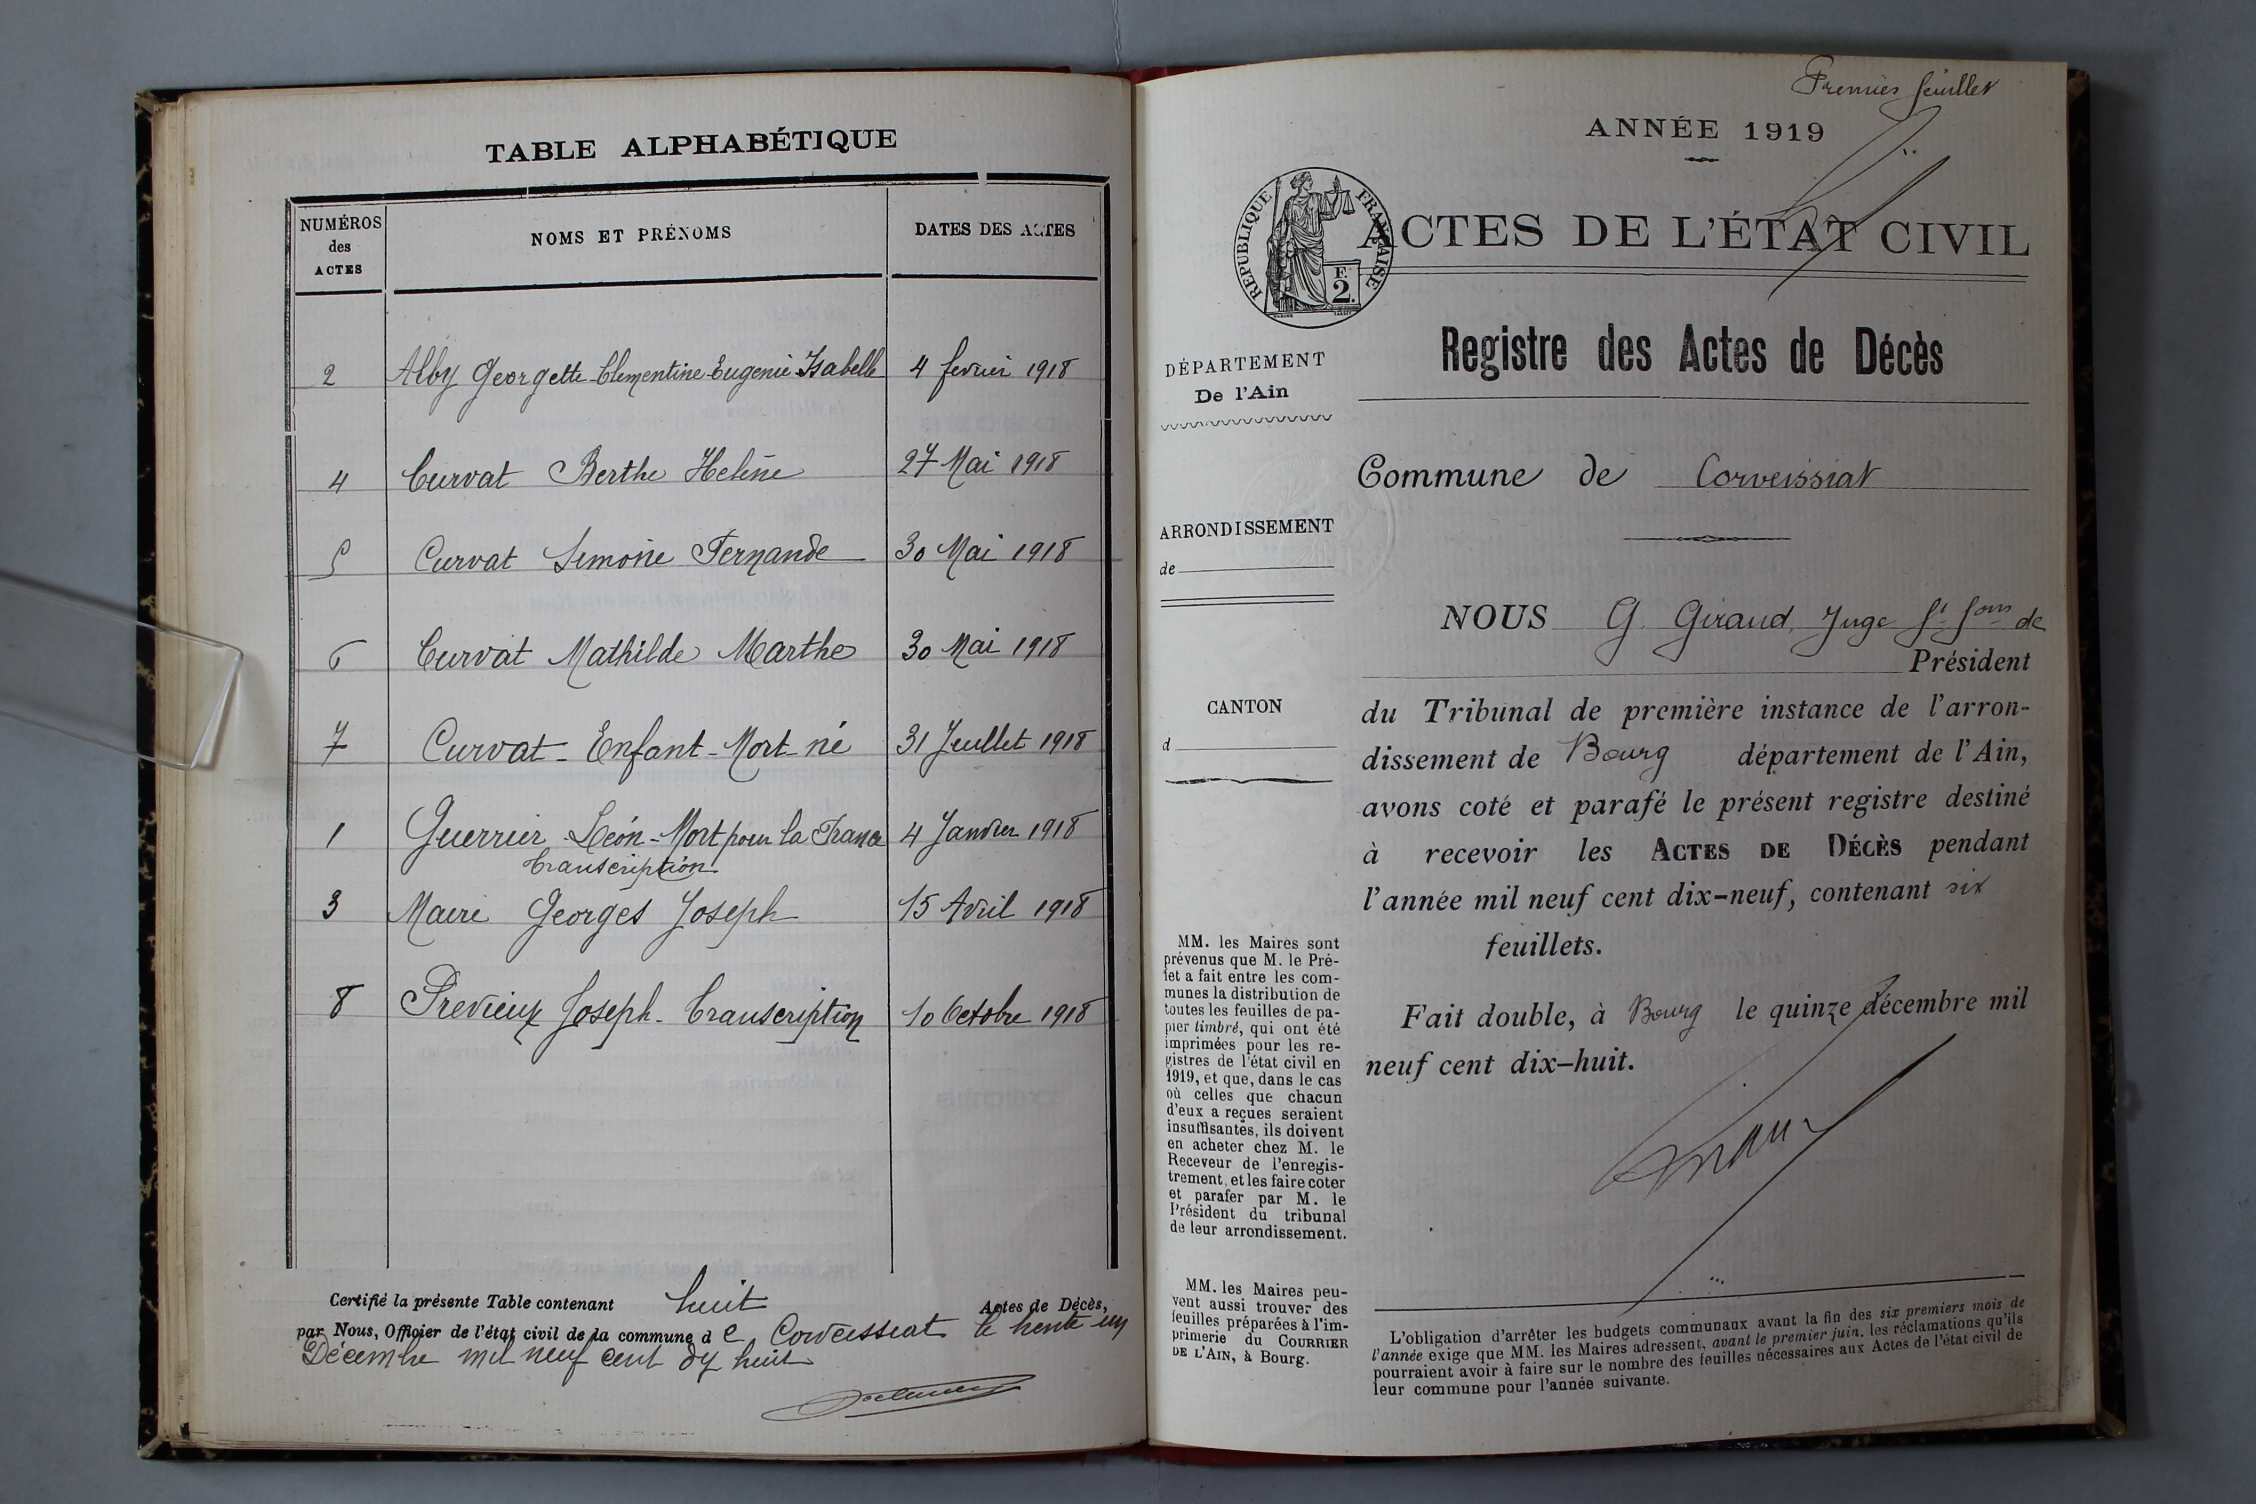 TABLE ALPHABÉTIQUE
NUMÉROS des ACTES
NOMS ET PRÉNOMS
DATES DES ACTES
2 Alby Georgette Clementine Eugenie Isabelle 4 fevrier 1918
4 Curvat Berthe Helène 27 Mai 1918
5 Curvat Simone Fernande 30 Mai 1918
6 Curvat Mathilde Marthe 30 Mai 1918
7 Curvat - Enfant - Mort-né 31 Juillet 1918
1 Guerrier Léon - Mort pour la France 4 Janvier 1918
transcription
3 Maire Georges Joseph 15 Avril 1918
8 Previeux Joseph - Transcription 10 Octobre 1918
Certifié la présente Table contenant huit Actes de Décès,
par Nous, Officier de l'état civil de la commune d e Corveissiat le trente un
Décembre mil neuf cent dix huit
Premier feuillet
ANNÉE 1919
RÉPUBLIQUE FRANÇAISE
F. 2.
ACTES DE L'ÉTAT CIVIL
Registre des Actes de Décès
DÉPARTEMENT
De l'Ain
Commune de Corveissiat
ARRONDISSEMENT
de
CANTON
d
NOUS G. Giraud, Juge de
Président
du Tribunal de première instance de l'arron-
dissement de Bourg département de l'Ain,
avons coté et parafé le présent registre destiné
à recevoir les ACTES DE DÉCÈS pendant
l'année mil neuf cent dix-neuf, contenant six
feuillets.
Fait double, à Bourg le quinze décembre mil
neuf cent dix-huit.
MM. les Maires sont
prévenus que M. le Pré-
fet a fait entre les com-
munes la distribution de
toutes les feuilles de pa-
pier timbré, qui ont été
imprimées pour les re-
gistres de l'état civil en
1919, et que, dans le cas
où celles que chacun
d'eux a reçues seraient
insuffisantes, ils doivent
en acheter chez M. le
Receveur de l'enregis-
trement, et les faire coter
et parafer par M. le
Président du tribunal
de leur arrondissement.
MM. les Maires peu-
vent aussi trouver des
feuilles préparées à l'im-
primerie du COURRIER
DE L'AIN, à Bourg.
L'obligation d'arrêter les budgets communaux avant la fin des six premiers mois de
l'année exige que MM. les Maires adressent, avant le premier juin, les réclamations qu'ils
pourraient avoir à faire sur le nombre des feuilles nécessaires aux Actes de l'état civil de
leur commune pour l'année suivante.